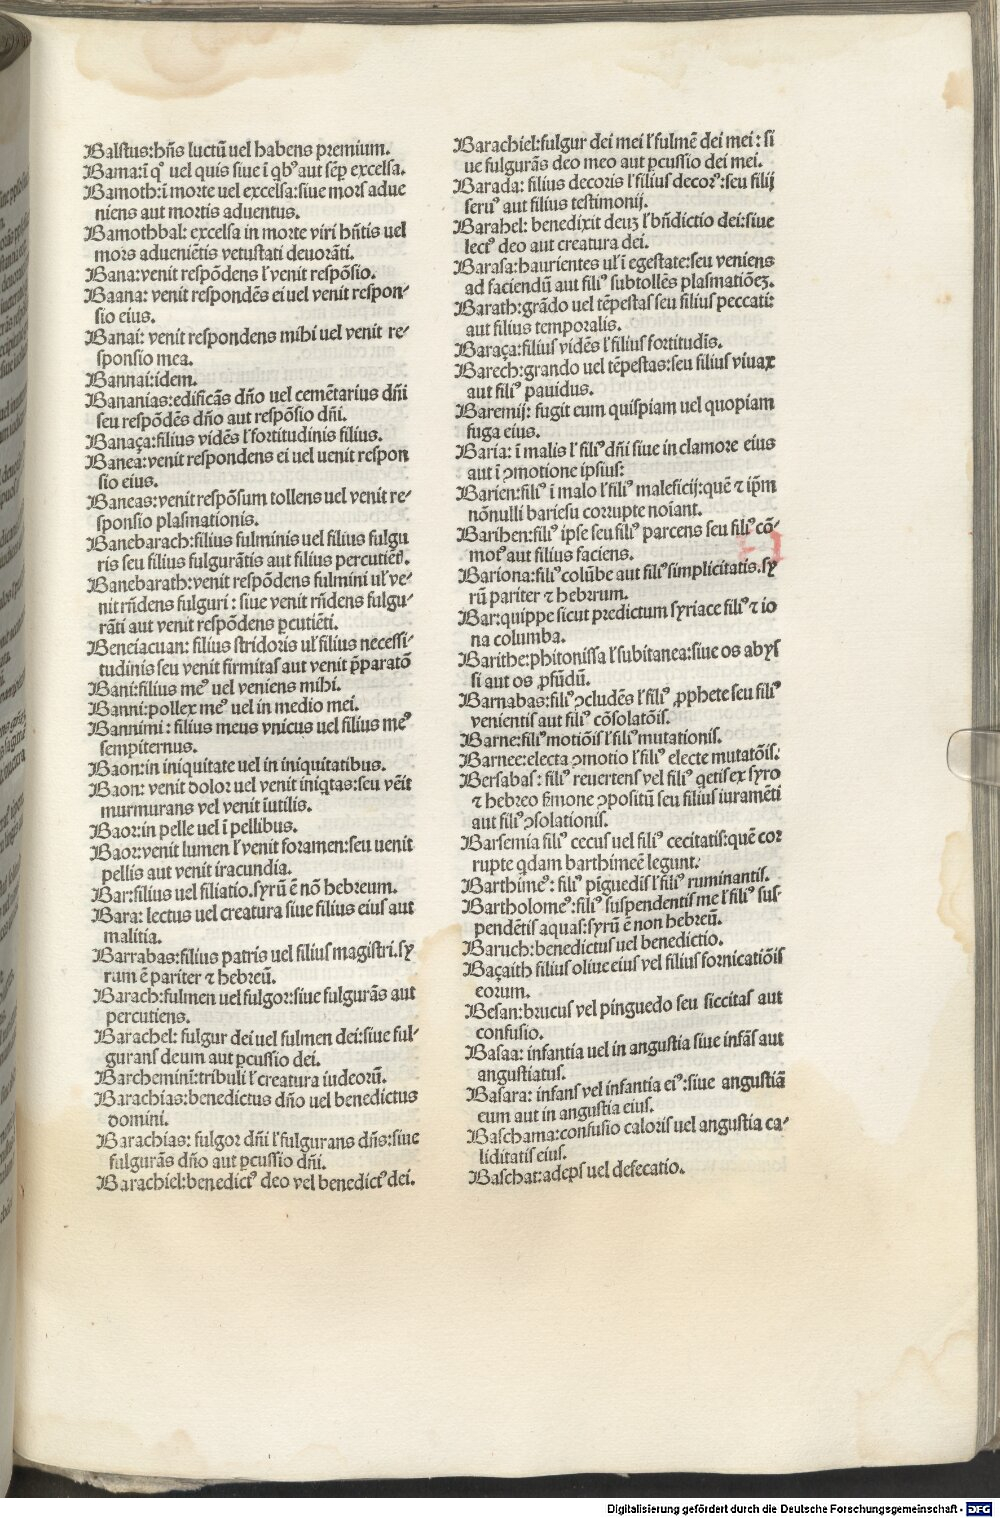 Balstus:hñs luctū uel habens premium.
Bama:ī qꝰ vel quis siue ī qbꝰ aut sēp excelsa.
Bamoth:ī morte vel excelsa:siue mors adue
niens aut mortis aduentus.
Bamothbal: excelsa in morte viri hñtis uel
mors adueniētis vetustati deuorāti.
Bana:venit respōdens ł venit respōsio.
Baana: venit respondēs ei vel venit respon⸗
sio eius.
Banai: venit respondens mihi uel venit re⸗
sponsio mea.
Bannai:idem.
Bananias:edificās dño uel cemētarius dñi
seu respōdēs dño aut respōsio dñi.
Banaça:filius vidēs ł fortitudinis filius.
Banea:venit respondens ei uel uenit respon
sio eius.
Baneas:venit respōsum tollens uel venit re⸗
sponsio plasmationis.
Banebarach:filius fulminis uel filius fulgu
ris seu filius fulgurātis aut filius percutiēt̄.
Banebarath:venit respōdens fulmini uł ve⸗
nit rñdens fulguri: siue venit rñdens fulgu⸗
rāti aut venit respōdens ꝑcutiēti.
Beneiacuan: filius stridoris uł filius necessi⸗
tudinis seu venit firmitas aut venit p̄paratō
Bani:filius meꝰ uel veniens mihi.
Banni:pollex meꝰ uel in medio mei.
Bannimi: filius meus vnicus uel filius meꝰ
sempiternus.
Baon:in iniquitate uel in iniquitatibus.
Baon: venit dolor uel venit iniqtas:seu vēit
murmurans vel venit īutilis.
Baor:in pelle uel ī pellibus.
Baor:venit lumen ł venit foramen:seu uenit
pellis aut venit iracundia.
Bar:filius uel filiatio.syrū ē nō hebreum.
Bara: lectus uel creatura siue filius eius aut
malitia.
Barrabas:filius patris uel filius magistri.sy
rum ē pariter ⁊ hebreū.
Barach:fulmen uel fulgor:siue fulgurās aut
percutiens.
Barachel: fulgur dei uel fulmen dei:siue ful⸗
gurans deum aut ꝑcussio dei.
Barchemini:tribuli ł creatura iudeorū.
Barachias:benedictus dño uel benedictus
domini.
Barachias: fulgor dñi ł fulgurans dñs:siue
fulgurās dño aut ꝑcussio dñi.
Barachiel:benedictꝰ deo vel benedictꝰ dei.
Barachiel:fulgur dei mei ł fulmē dei mei: si
ue fulgurās deo meo aut ꝑcussio dei mei.
Barada: filius decoris ł filius decorꝰ:seu filij
seruꝰ aut filius testimonij.
Barahel: benedixit deuʒ ł bñdictio dei:siue
lectꝰ deo aut creatura dei.
Barasa:haurientes uł ī egestate:seu veniens
ad faciendū aut filiꝰ subtollēs plasmatiōeʒ.
Barath:grādo uel tēpestas seu filius peccati:
aut filius temporalis.
Baraça:filius vidēs ł filius fortitudīs.
Barech:grando uel tēpestas:seu filius viuax
aut filiꝰ pauidus.
Baremij: fugit eum quispiam uel quopiam
fuga eius.
Baria: ī malis ł filiꝰ dñi siue in clamore eius
aut ī ꝯmotione ipsius:
Barien:filiꝰ ī malo ł filiꝰ maleficij:quē ⁊ ip̄m
nōnulli bariesu corrupte noīant.
Barihen:filiꝰ ipse seu filiꝰ parcens seu filiꝰ cō⸗
motꝰ aut filius faciens.
Bariona:filiꝰ colūbe aut filiꝰ simplicitatis.sy
rū pariter ⁊ hebreum.
Bar:quippe sicut predictum syriace filiꝰ ⁊ io
na columba.
Barithe:phitonissa ł subitanea:siue os abys
si aut os ꝓfūdū.
Barnabas:filiꝰ ꝯcludēs ł filiꝰ ꝓphete seu filiꝰ
venientis aut filiꝰ cōsolatōis.
Barne:filiꝰ motiōis ł filiꝰ mutationis.
Barnee:electa ꝯmotio ł filiꝰ electe mutatōis:
Bersabas: filiꝰ reuertens vel filiꝰ qetis ex syro
⁊ hebreo s̄mone ꝯpositū seu filius iuramēti
aut filiꝰ ꝯsolationis.
Barsemia filiꝰ cecus vel filiꝰ cecitatis:quē cor
rupte qdam barthimeē legunt.
Barthimeꝰ: filiꝰ pīguedīs ł filiꝰ ruminantis.
Bartholomeꝰ:filiꝰ suspendentis me ł filiꝰ sus⸗
pendētis aquas:syrū ē non hebreū.
Baruch:benedictus uel benedictio.
Baçaith filius oliue eius vel filius fornicatiōis
eorum.
Besan:brucus vel pinguedo seu siccitas aut
confusio.
Basaa: infantia uel in angustia siue infās aut
angustiatus.
Basara: infans vel infantia eiꝰ:siue angustiā
eum aut in angustia eius.
Baschama:confusio caloris uel angustia ca⸗
liditatis eius.
Baschat:adeps uel defecatio.
Digitalisierung gefördert durch die Deutsche Forschungsgemeinschaft - DFG